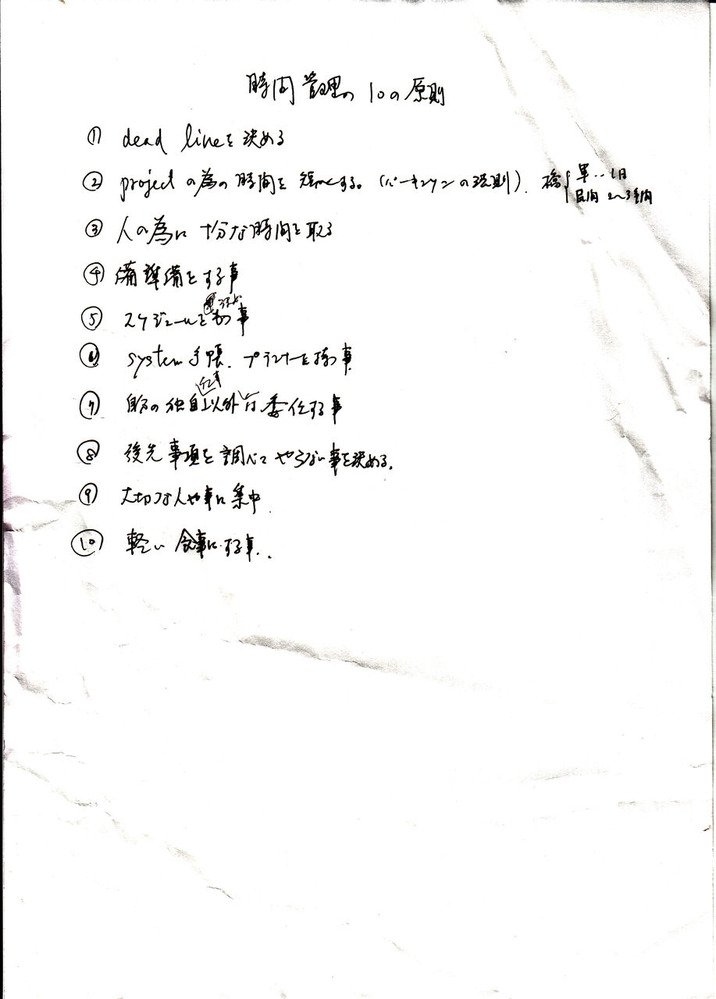 時間管理の10の原則
① dead lineを決める
② projectの為の時間を短くする。(パーキンソンの法則). 橋 軍‥1日
民間 2〜3年間
③ 人の為に十分な時間を取る
④ 準備をする事
⑤ スケジュールを 事
⑥ system手帳. プランナーを持つ事
⑦ 自分の独自 以外は委任する事
⑧ 後先事項を調べて やらない事を決める.
⑨ 大切な人や事に集中
⑩ 軽い食事にする事..